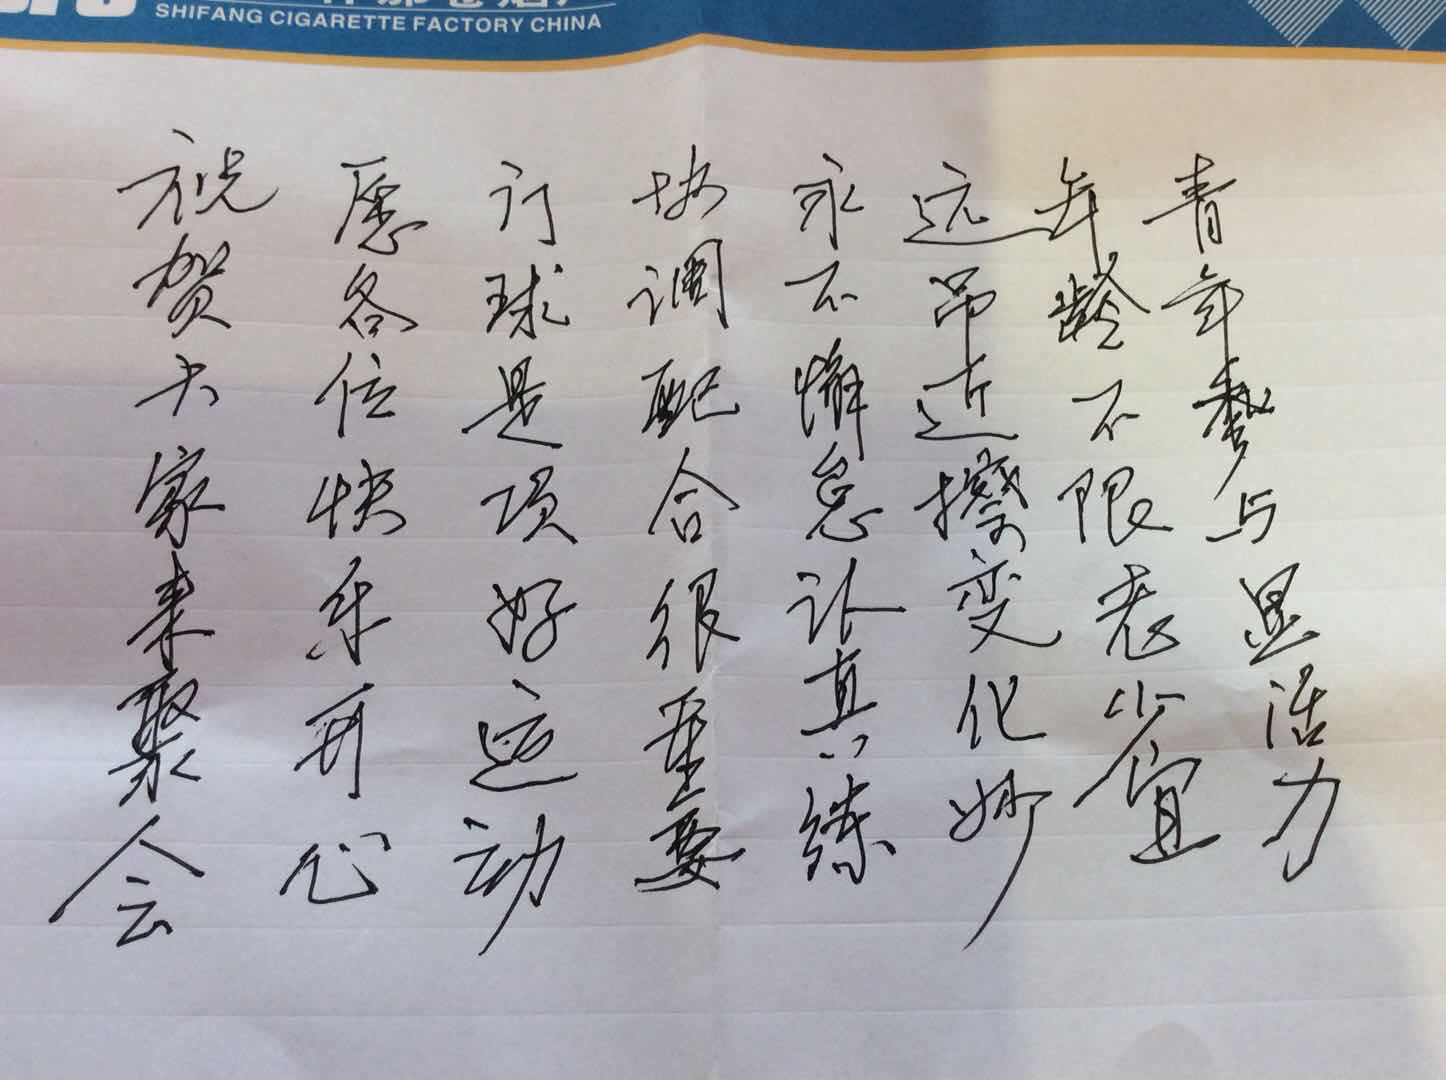 SHIFANG CIGARETTE FACTORY CHINA
祝贺大家来聚会
愿各位快乐开心
门球是项好运动
协调配合很重要
永不懈怠认真练
远吊近擦变化妙
年龄不限老少宜
青年参与显活力